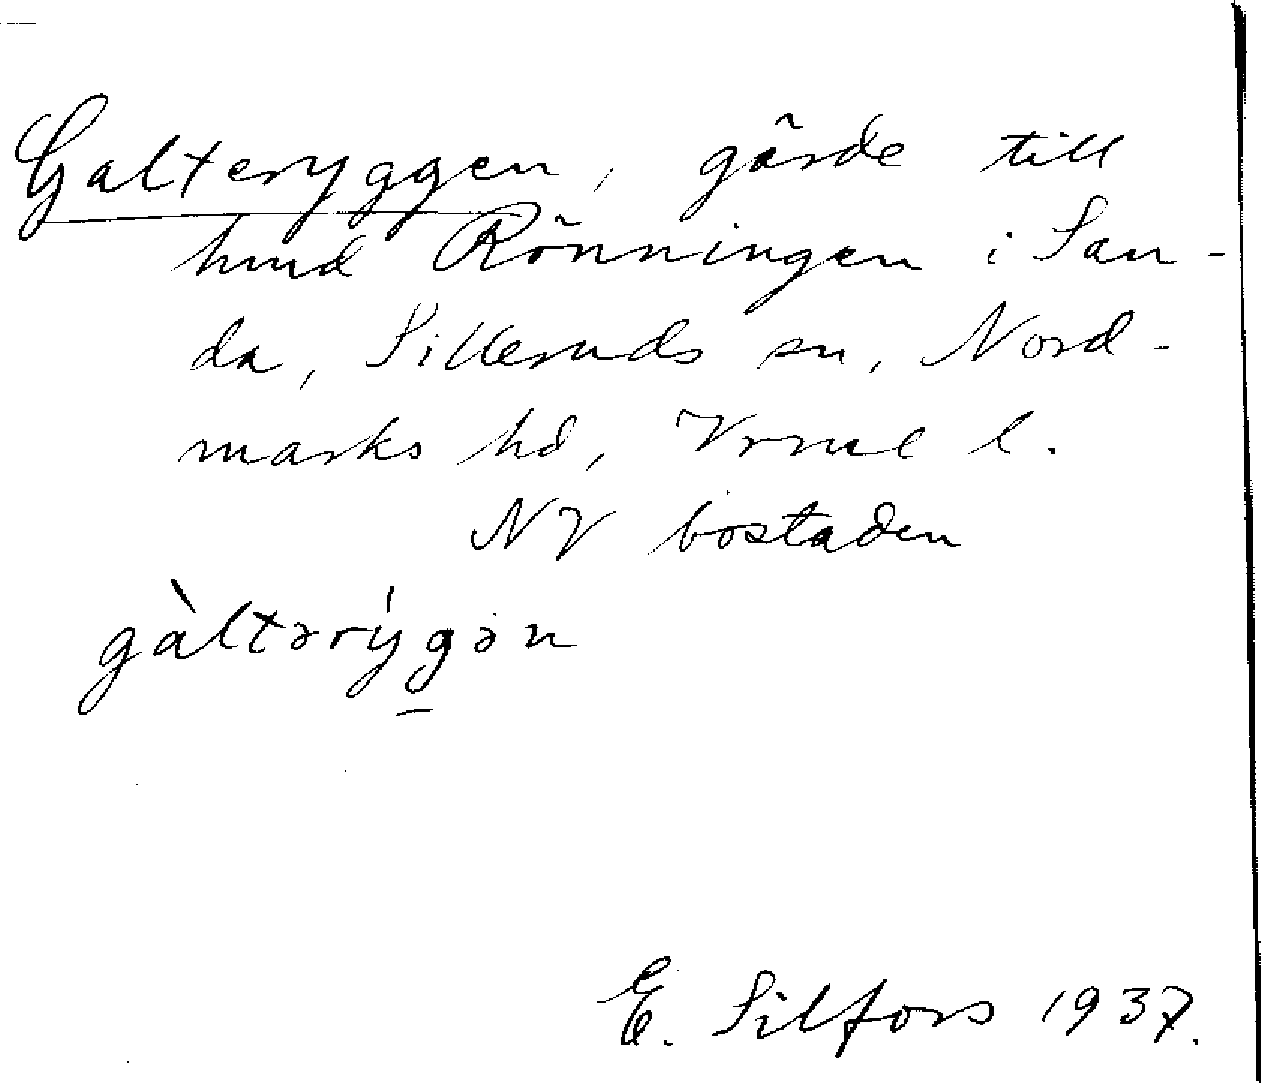 Galteryggen, gärde till
hmd Rönningen i San-
da, Silleruds sn, Nord-
marks hd, Vrml l.
NV bostaden
gàltərýgən
E. Silfors 1937.